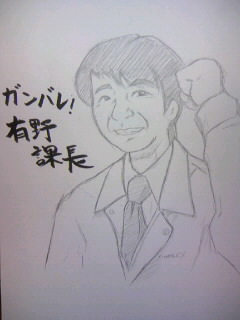 ガンバレ!
有野
課長